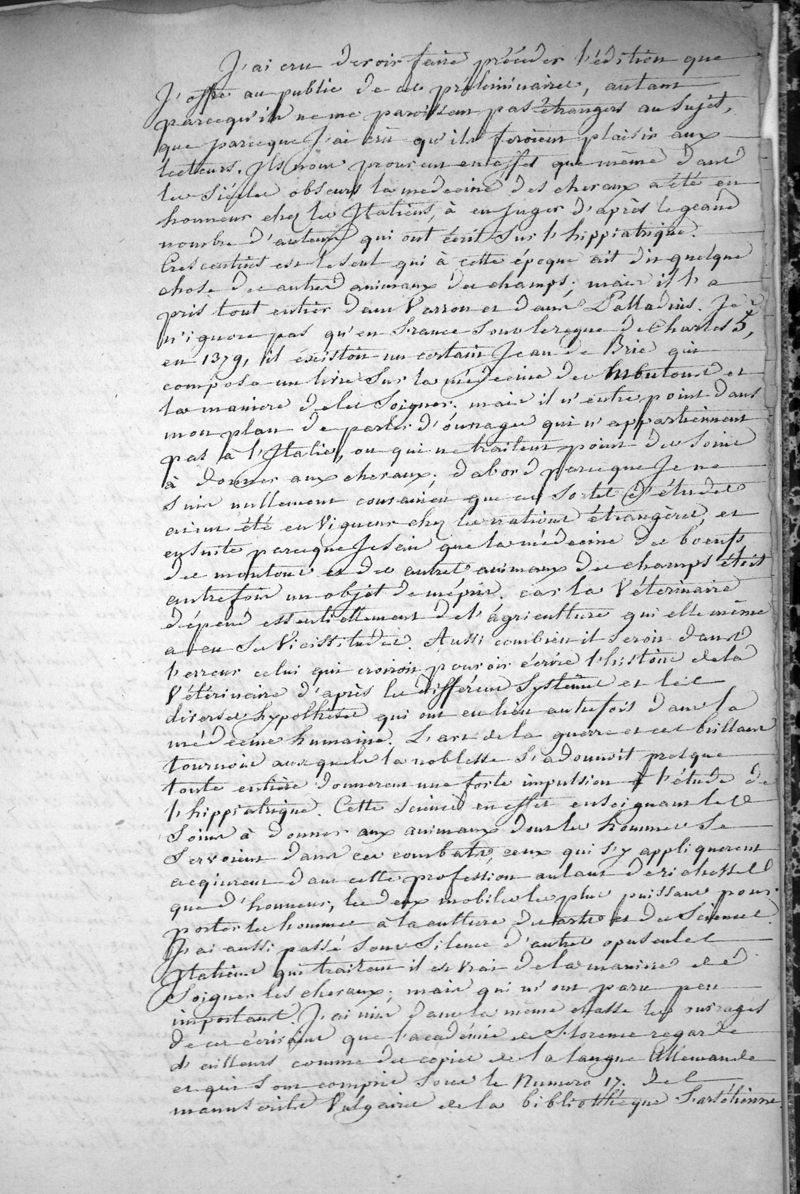 J'ai cru devoir faire précéder l'édition que
J'offre au public de ces préliminaires, autant
parcequ'ils ne me paroissent pas étrangers au sujet,
que parceque J'ai cru qu'ils feroient plaisir aux
lecteurs. Ils nous prouvent en effet que même dans
les siécles obscurs la médecine des chevaux a été en
honneur chez les Italiens, à en juger d'après le grand
nombre d'auteurs qui ont écrit sur l'hippiatrique.
Crescentius est le seul qui à cette époque ait dit quelque
chose des autres animaux des champs; mais il l'a
pris tout entier dans Varron et dans Palladius. Je
n'ignore pas qu'en france sous le regne de Charles 5,
en 1379, il existoit un certain Jean de Brie qui
composa un livre sur la médecine des Moutons et
la maniere de les soigner. mais il n'entre point dans
mon plan de parler d'ouvrages qui n'appartiennent
pas à l'Italie, ou qui ne traitent point des soins
à donner aux chevaux; d'abord parceque Je ne
suis nullement convaincu que ces sortes d'études
aient été en vigueur chez les nations étrangères, et
ensuite parceque Je sais que la médecine des boeufs
des moutons et des autres animaux des champs étoit
autrefois un objet de mépris. car la Vétérinaire
dépend essentiellement de l'agriculture qui elle même
a eu ses Vicissitudes. Aussi combien il seroit dans
l'erreur celui qui croiroit pouvoir écrire l'histoire de la
Vétérinaire d'après les différens systêmes et les
diverses hypothèses qui ont eu lieu autrefois dans la
médecine humaine. L'art de la guerre et ces brillans
tournois auxquels la noblesse s'adonnoit presque
toute entière donnerent une forte impulsion à l'étude de
l'hippiatrique. Cette science en effet enseignant les
soins à donner aux animaux dont les hommes se
servoient dans ces combats, ceux qui s'y appliquerent
acquirent dans cette profession autant de richesses
que d'honneur, les deux mobiles les plus puissans pour
porter les hommes à la culture des arts et des sciences.
J'ai aussi passé sous silence d'autres opuscules
Italiens qui traitent il est vrai de la maniere de
soigner les chevaux; mais qui m'ont paru peu
importans. J'ai mis dans la même classe les ouvrages
de ces écrivains que l'académie de Florence regarde
d'ailleurs comme des copies de la langue Allemande
et qui sont compris sous le Numero 17. des
manuscrits Vulgaires de la bibliothèque